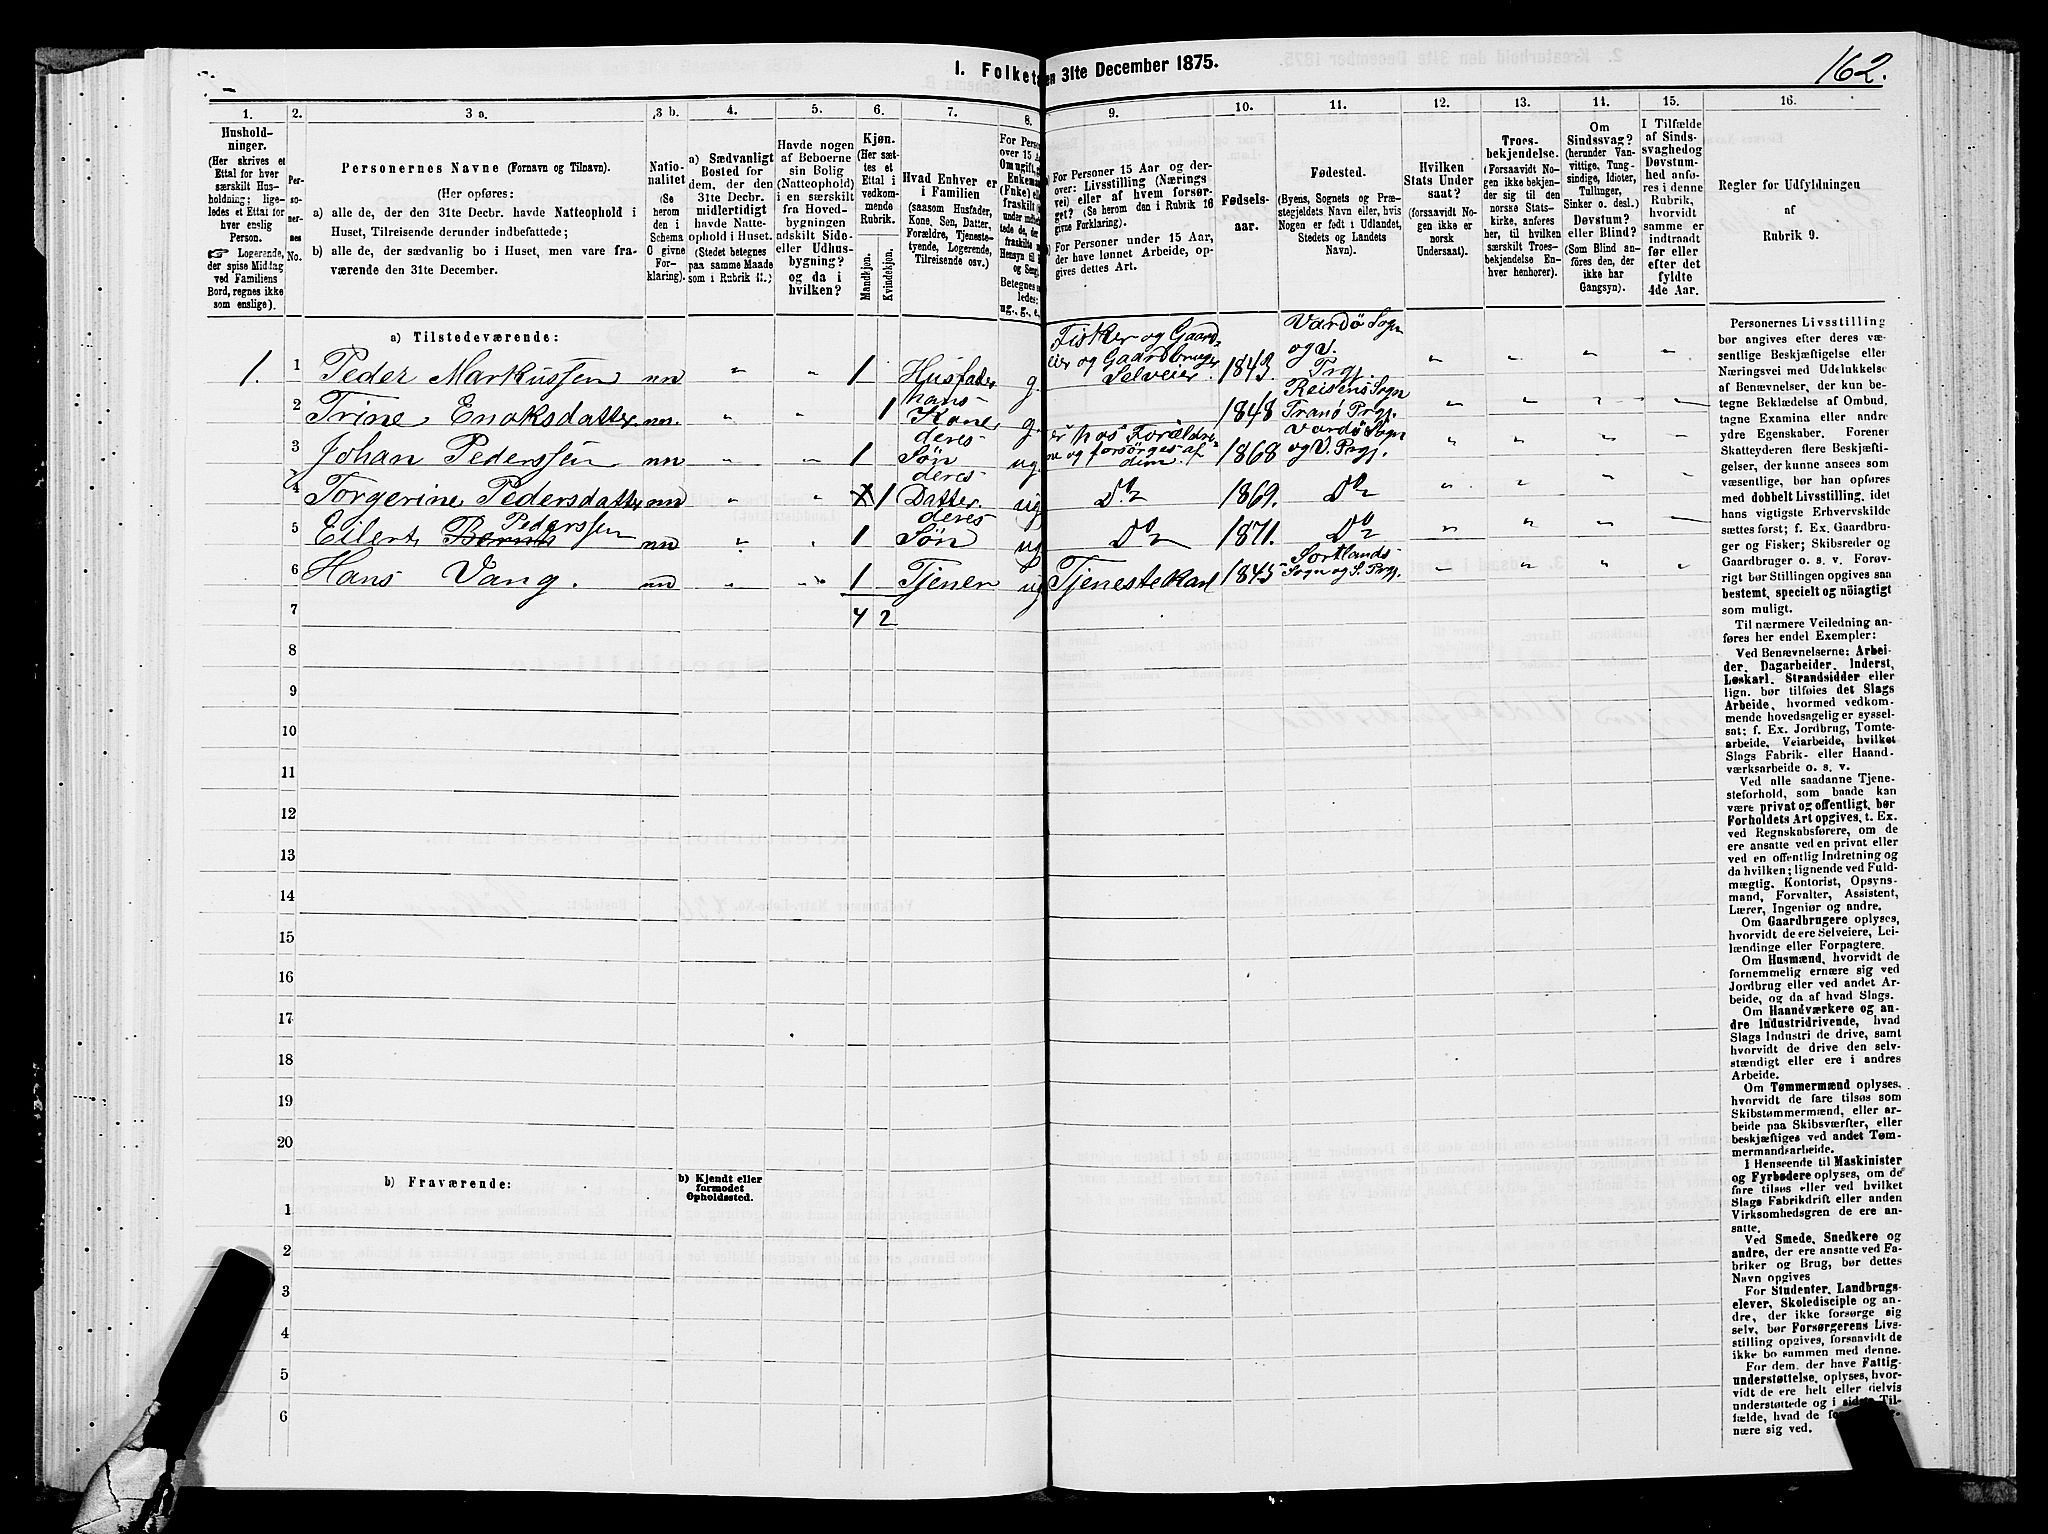 162.
1. Folketæ
en 31te December 1875.
1. 2. 3 a. 3 b. 4. 5. 6. 7. 8. 9. 10. 11. 12. 13. 14. 15. 16.
Hushold-
ninger.
(Her skrives et
Ettal for hver
særskilt Hus-
holdning; lige-
ledes et Ettal for
hver enslig
Person.
☞ Logerende,
der spise Middag
ved Familiens
Bord, regnes ikke
som enslige).
Per-
soner-
nes
No.
Personernes Navne (Fornavn og Tilnavn).
(Her opføres:
a) alle de, der den 31te Decbr. havde Natteophold i
Huset, Tilreisende derunder indbefattede;
b) alle de, der sædvanlig bo i Huset, men vare fra-
værende den 31te December.
Natio-
nalitet
(Se
herom
den i
Schema
O givne
For-
klaring).
a) Sædvanligt
Bosted for
dem, der den
31te Decbr.
midlertidigt
havde Natte-
ophold i Huset.
(Stedet betegnes
paa samme Maade
som i Rubrik 11.;)
Havde nogen
af Beboerne
sin Bolig
(Natteophold)
i en særskilt
fra Hoved-
bygningen
adskilt Side-
eller Udhus-
bygning?
og da i
hvilken?
Kjøn.
(Her sæt-
tes et
Ettal i
vedkom-
mende
Rubrik.
Mandkjøn.
Kvindekjøn.
Hvad Enhver er
i Familien
(saasom Husfader,
Kone, Søn, Datter,
Forældre, Tjeneste-
tyende, Logerende,
Tilreisende osv.)
For Perso
over 15 Aa
Omugift,
Enkeman
(Fnke) e
fraskilt
under indb
tede de, d
fraskilte
Hensyn til
og Seng
Betegnes s
ledes:
ug., g., e.,
a) For Personer 15 Aar og der-
over: Livsstilling (Nærings-
vei) eller af hvem forsør-
get? (Se herom den i Rubrik 16
givne Forklaring).
b) For Personer under 15 Aar,
der have lønnet Arbeide, op-
gives dettes Art.
Fødsels-
aar.
Fødested.
(Byens, Sognets og Præ-
stegjeldets Navn eller, hvis
Nogen er født i Udlandet,
Stedets og Landets
Navn).
Hvilken
Stats Under
saat?
(forsaavidt No-
gen ikke er
norsk
Undersaat).
Troes-
bekjendelse.
(Forsaavidt No-
gen ikke bekjen-
der sig til den
norske Stats-
kirke, anføres
her, til hvilken
særskilt Troes-
bekjendelse
Enhver henhører).
Om
Sindssvag?
(herunder Van-
vittige, Tung-
sindige, Idioter,
Tullinger,
Sinker o. desl.)
Døvstum?
eller Blind?
(Som Blind an-
føres den, der
ikke har
Gangsyn).
I Tilfælde
af Sinds-
svaghedog
Døvstum-
hed anfø-
res i denne
Rubrik,
hvorvidt
samme er
indtraadt
før eller
efter det
fyldte
4de Aar.
Regler for Udfyldningen
af
Rubrik 9.
a) Tilstedeværende:
1. 1 Peder Markussen nn " " 1 Husfader g. Fisker og Gaard-
eier og Gaardbruger
Selveier. 1843. Vardø Sogn
og V.
Prgj. " " " "
2 Trine Enoksdatter nn. " " 1 hans
Kone g. 1848 Reisens Sogn
Tranø Prgj. " " " "
3 Johan Pederssen nn " " 1 deres
Søn ug. er hos Forældre-
ne og forsørges af
dem. 1868 Vardø Sogn
og V. Prgj. " " " "
4 Torgerine Pedersdatter nn " " 1 deres
Datter. ug Do 1869. Do " " " "
5 Eilert Pederssen nn " " 1 deres
Søn ug Do 1871. Do " " " "
6 Hans Vang. nn " " 1 Tjener ug TjenesteKarl 1845 Sortlands-
Sogn og S. Prgj. " " " "
7 4 2
8
9
10
11
12
13
14
15
16
17
18
19
20
b) Fraværende:
b) Kjendt eller
formodet
Opholdssted.
1
2
3
4
5
6
Personernes Livsstilling
bør angives efter deres væ-
sentlige Beskjæftigelse eller
Næringsvei med Udelukkelse
af Benævnelser, der kun be-
tegne Beklædelse af Ombud,
tagne Examina eller andre
ydre Egenskaber. Forener
Skatteyderen flere Beskjæfti-
gelser, der kunne ansees som
væsentlige, bør han opføres
med dobbelt Livsstilling, idet
hans vigtigste Erhvervskilde
sættes først; f. Ex. Gaardbru-
ger og Fisker; Skibsreder og
Gaardbruger o. s. v. Forøv-
rigt bør Stillingen opgives saa
bestemt, specielt og nöiagtigt
som muligt.
Til nærmere Veiledning an-
føres her endel Exempler:
Ved Benævnelserne: Arbei-
der, Dagarbeider, Inderst,
Løskarl, Strandsidder eller
lign. bør tilføies det Slags
Arbeide, hvormed vedkom-
mende hovedsagelig er syssel-
sat; f. Ex. Jordbrug, Tomte-
arbeide, Veiarbeide, hvilket
Slags Fabrik- eller Haand-
værksarbeide o. s. v.
Ved alle saadanne Tjene-
steforhold, som baade kan
være privat og offentligt, bør
Forholdets Art opgives, t. Ex.
ved Regnskabsførere, om de
ere ansatte ved en privat eller
ved en offentlig Indretning og
da hvilken; lignende ved Fuld-
mægtig, Kontorist, Opsyns-
mand, Forvalter, Assistent,
Lærer, Ingeniør og andre.
Om Gaardbrugere oplyses,
hvorvidt de ere Selveiere, Lei-
lændinge eller Forpagtere.
Om Husmænd, hvorvidt de
fornemmelig ernære sig ved
Jordbrug eller ved andet Ar-
beide, og da af hvad Slags.
Om Haandværkere og an-
dre Industridrivende, hvad
Slags Industri de drive, samt
hvorvidt de drive den selv-
stændigt eller ere i andres
Arbeide.
Om Tømmermænd oplyses,
hvorvidt de fare tilsøs som
Skibstømmermænd, eller ar-
beide paa Skibsværfter, eller
beskjæftiges ved andet Tøm-
mermandsarbeide.
I Henseende til Maskinister
og Fyrbødere oplyses, om de
fare tilsøs eller ved hvilket
Slags Fabrikdrift eller anden
Virksomhedsgren de ere an-
satte.
Ved Smede, Snedkere og
andre, der ere ansatte ved Fa-
briker og Brug, bør dettes
Navn opgives
For Studenter, Landbrugs-
elever, Skoledisciple og an-
dre, der ikke forsørge sig
selv, bør Forsørgerens Livs-
stilling opgives, forsaavidt de
ikke bo sammen med denne.
For dem, der have Fattig-
understøttelse, oplyses, hvor-
vidt de ere helt eller delvis
understøttede og i sidste Til-
fælde, hvad de
nære sig ved.